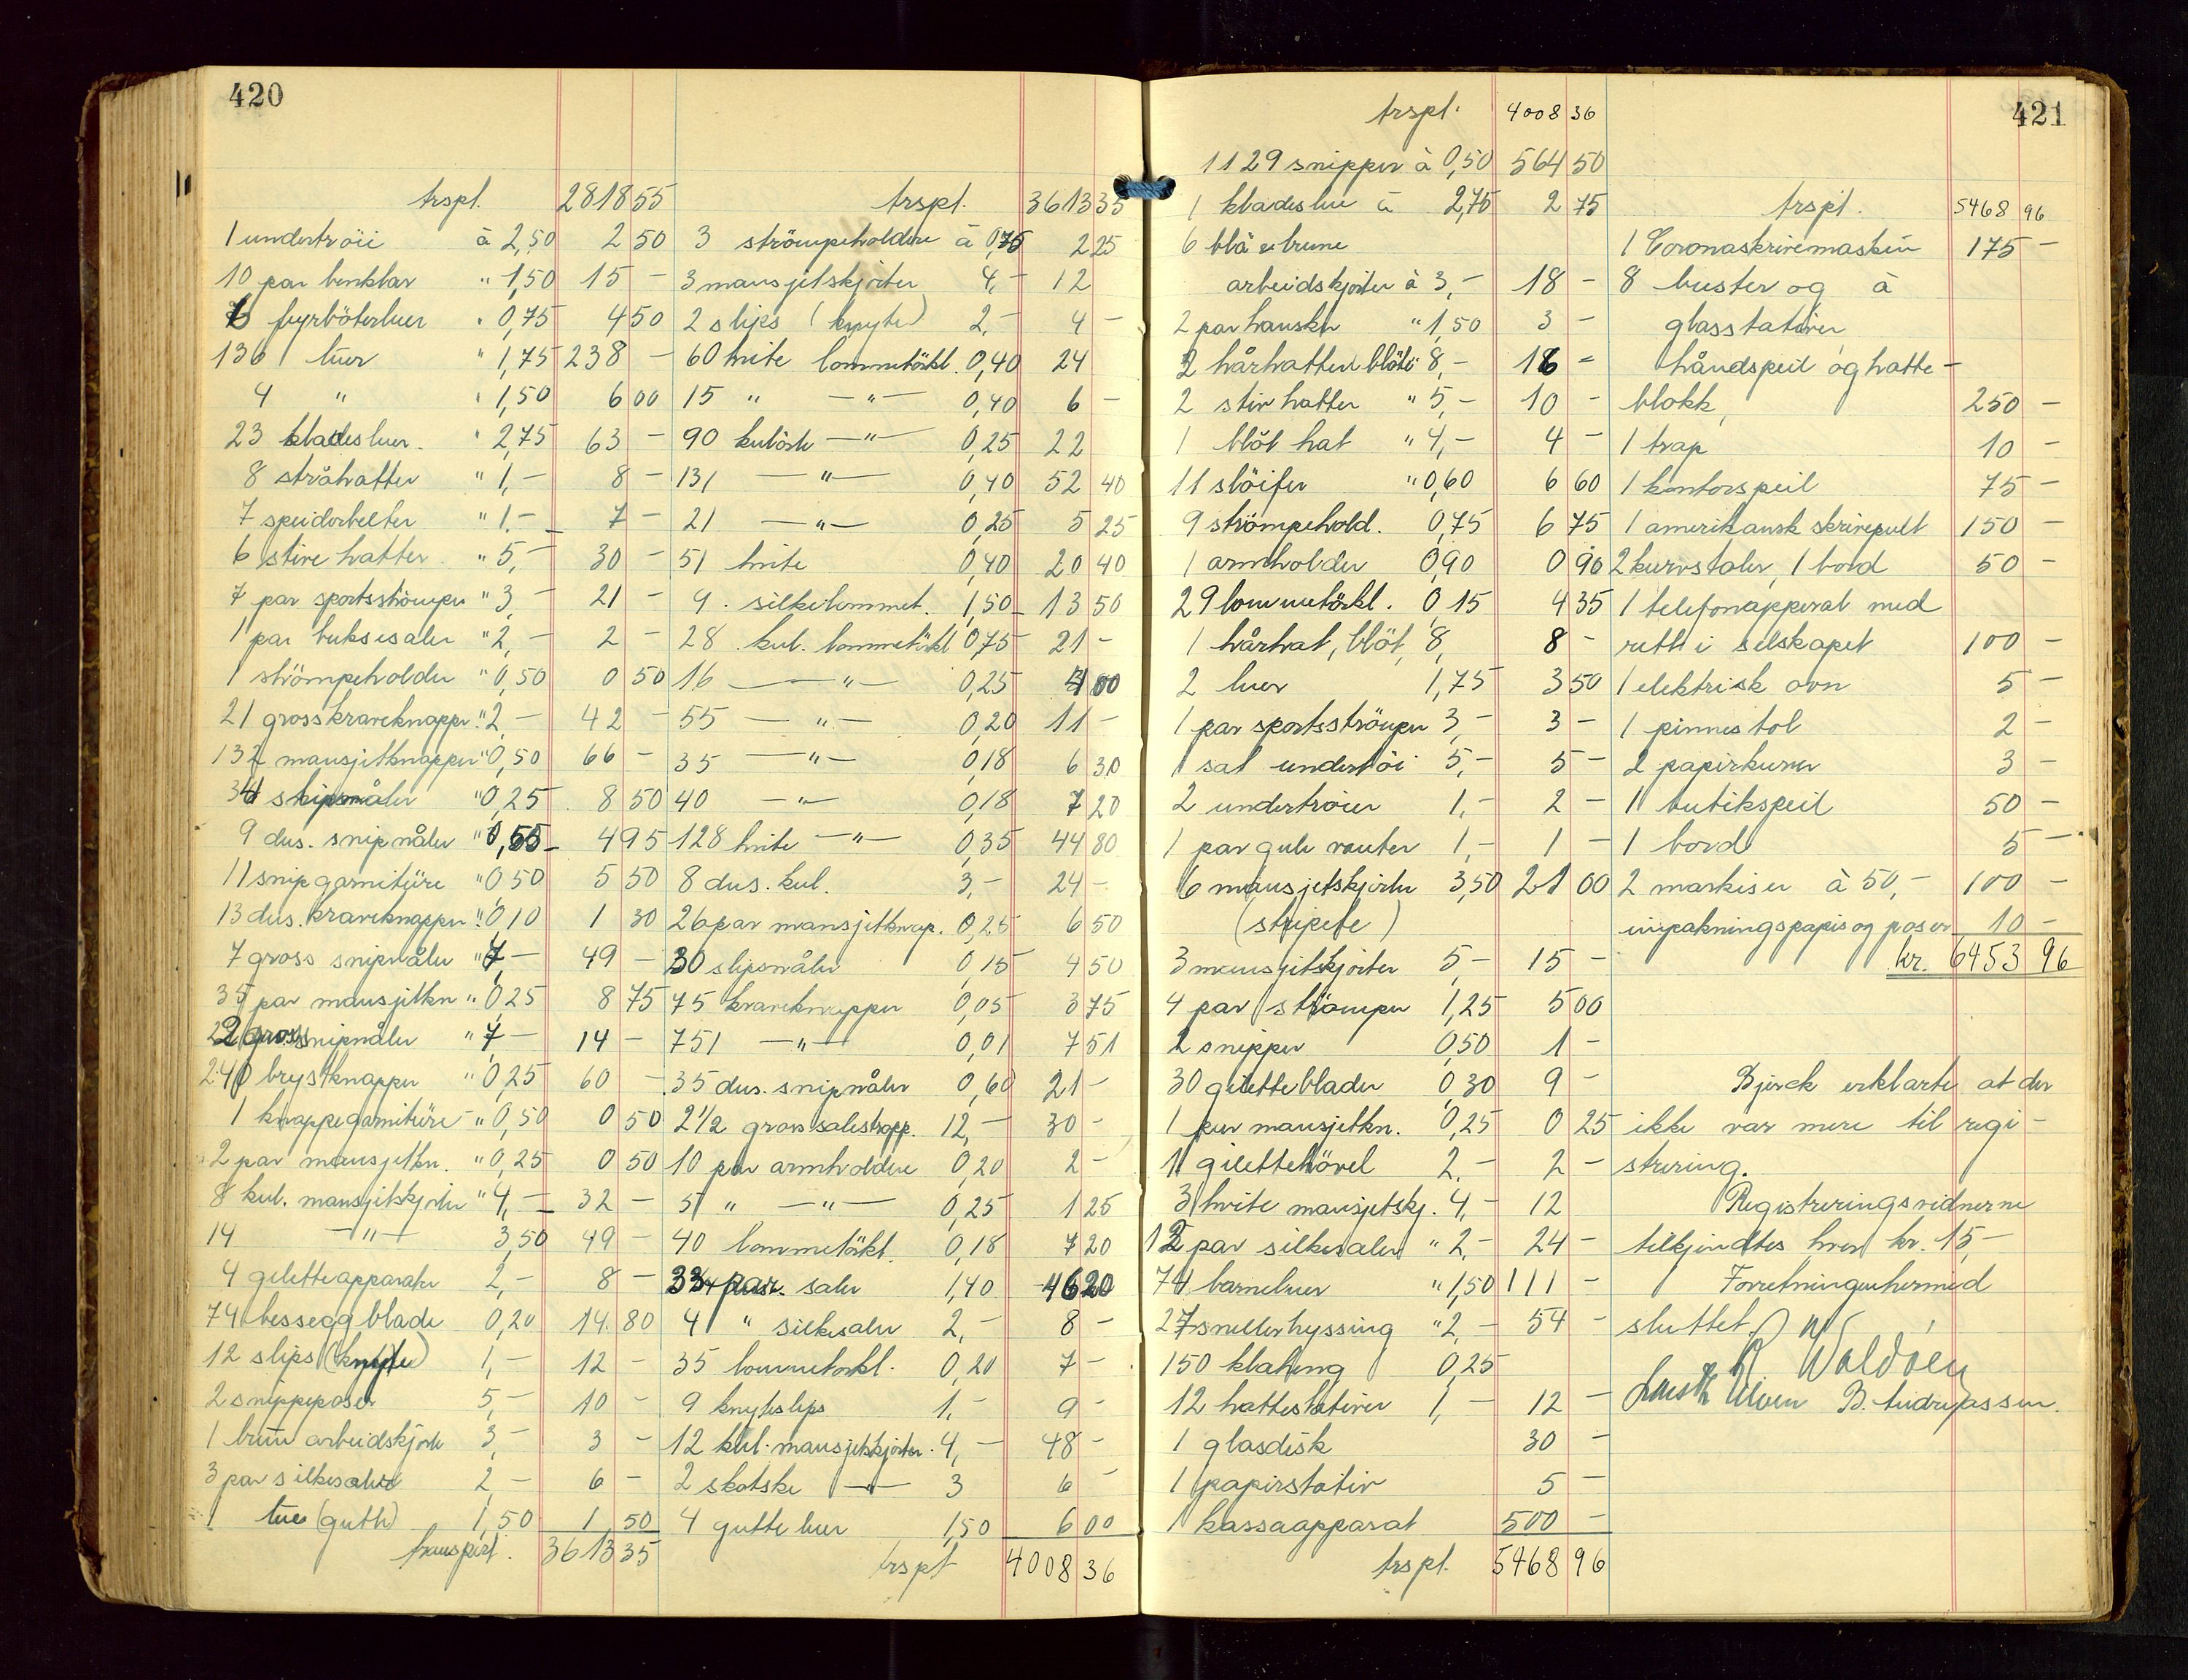 420
trspl. 2818 55
1 undertröie à 2,50 2 50
10 par benklær " 1,50 15 -
6 fyrböterluer " 0,75 4 50
136 luer " 1,75 238 -
4 " " 1,50 6 00
23 kladesluer " 2,75 63 -
8 stråhatter " 1,- 8 -
7 speiderbelter " 1.- 7 -
6 stive hatter " 5,- 30 -
7 par sportsströmper " 3,- 21 -
1 par buksesaler " 2,- 2 -
1 strömpeholder " 0,50 0 50
21 gross kraveknapper " 2,- 42 -
132 mansjetknapper " 0,50 66 -
34 slipsnåler " 0,25 8 50
9 dus. snipnåler " 0,55 4 95
11 snipgarnitüre " 0,50 5 50
13 dus. kraveknapper " 0,10 1 30
7 gross snipnåler " 7,- 49 -
35 par mansjetkn " 0,25 8 75
2 gross snipnåler " 7,- 14 -
240 brystknapper " 0,25 60 -
1 knappegarnitüre " 0,50 0 50
2 par mansjetkn. " 0,25 0 50
8 kul. mansjetskjorter " 4,- 32 -
14 -"- 3,50 49 -
4 giletteapparater 2,- 8 -
74 bessegg blade 0,20 14 80
12 slips (knyte) 1,- 12 -
2 snippeposer 5,- 10 -
1 brun arbeidskjorte 3,- 3 -
3 par silkesaler 2,- 6 -
1 lue (gutte) 1,50 1 50
transport. 3613 35
trspl. 3613 35
3 strömpeholdere à 0,75 2 25
3 mansjetskjorter 4,- 12
2 slips (knyte) 2,- 4 -
60 hvite lommetörkl. 0,40 24
15 " -"- 0,40 6 -
90 kulörte -"- 0,25 22
131 -"- 0,40 52 40
21 -"- 0,25 5 25
51 hvite 0,40 20 40
9 silkelommet. 1,50 13 50
28 kul. lommetörkl 0,75 21 -
16 -"- 0,25 4 00
55 -"- 0,20 11 -
35 -"- 0,18 6 30
40 -"- 0,18 7 20
128 hvite -"- 0,35 44 80
8 dus. kul. 3,- 24 -
26 par mansjetknap. 0,25 6 50
30 slipsnåler 0,15 4 50
75 kraveknapper 0,05 3 75
751 -"- 0,01 7 51
35 dus. snipnåler 0,60 21 -
2 1/2 gross salestropp. 12,- 30 -
10 par armholdere 0,20 2 -
5 " -"- 0,25 1 25
40 lommetörkl. 0,18 7 20
33 par saler 1,40 46 20
4 " silkesaler 2,- 8 -
35 lommetörkl. 0,20 7 -
9 knyteslips 1,- 9 -
12 kul. mansjetskjorter. 4,- 48 -
2 skotske -"- 3 6 -
4 gutte luer 1,50 6 00
trspt 4008 36
421
trspl. 4008 36
1129 snipper à 0,50 564 50
1 kladeslue à 2,75 2 75
6 blå & brune
arbeidskjorter à 3,- 18 -
2 par hansker " 1,50 3 -
2 hårhatter blöte 8,- 16 -
2 stive hatter " 5,- 10 -
1 blöt hat " 4,- 4 -
11 slöifer " 0,60 6 60
9 strömpehold. 0,75 6 75
1 armholder 0,90 0 90
29 lommetörkl. 0,15 4 35
1 hårhat, blöt, 8, 8 -
2 luer 1,75 3 50
1 par sportsströmper 3,- 3 -
1 sat undertöi 5,- 5 -
2 undertröier 1,- 2 -
1 par gule vanter 1,- 1 -
6 mansjetskjorter 3,50 21 00
(stripete)
3 mansjetskjorter 5,- 15 -
4 par strömper 1,25 5 00
2 snipper 0,50 1 -
30 giletteblader 0,30 9 -
1 par mansjetkn. 0,25 0 25
1 gilettehövel 2,- 2 -
3 hvite mansjetskj. 4,- 12
12 par silkesaler " 2,- 24 -
74 barneluer " 1,50 111 -
27 sneller hyssing " 2,- 54 -
150 klæheng 0,25
12 hattestativer 1,- 12 -
1 glasdisk 30 -
1 papirstativ 5 -
1 kassaapparat 500 -
trspl. 5468 96
trspl. 5468 96
1 Coronaskrivemaskin 175 -
8 buster og à
glasstativer,
håndspeil og hatte-
blokk, 250 -
1 trap 10 -
1 kontorspeil 75 -
1 amerikansk skrivepult 150 -
2 kurvstoler, 1 bord 50 -
1 telefonapparat med
rett i selskapet 100 -
1 elektrisk ovn 5 -
1 pinnestol 2 -
2 papirkurver 3 -
1 butikspeil 50 -
1 bord 5 -
2 markiser à 50,- 100 -
inpakningspapir og poser 10 -
kr. 6453 96
Bjerck erklærte at der
ikke var mere til regi-
strering.
Registreringsvidnerne
tilkjendtes hver kr. 15,-
Forretningen hermed
sluttet.
Waldøen
B. Andreassen.